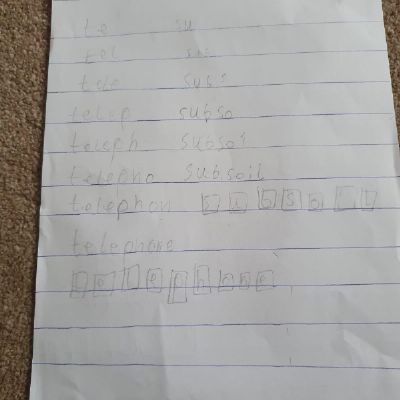 te su
tel
tele subs
telep subso
teleph subsoi
telepho subsoil
telephon subsoil
telephone
telephone